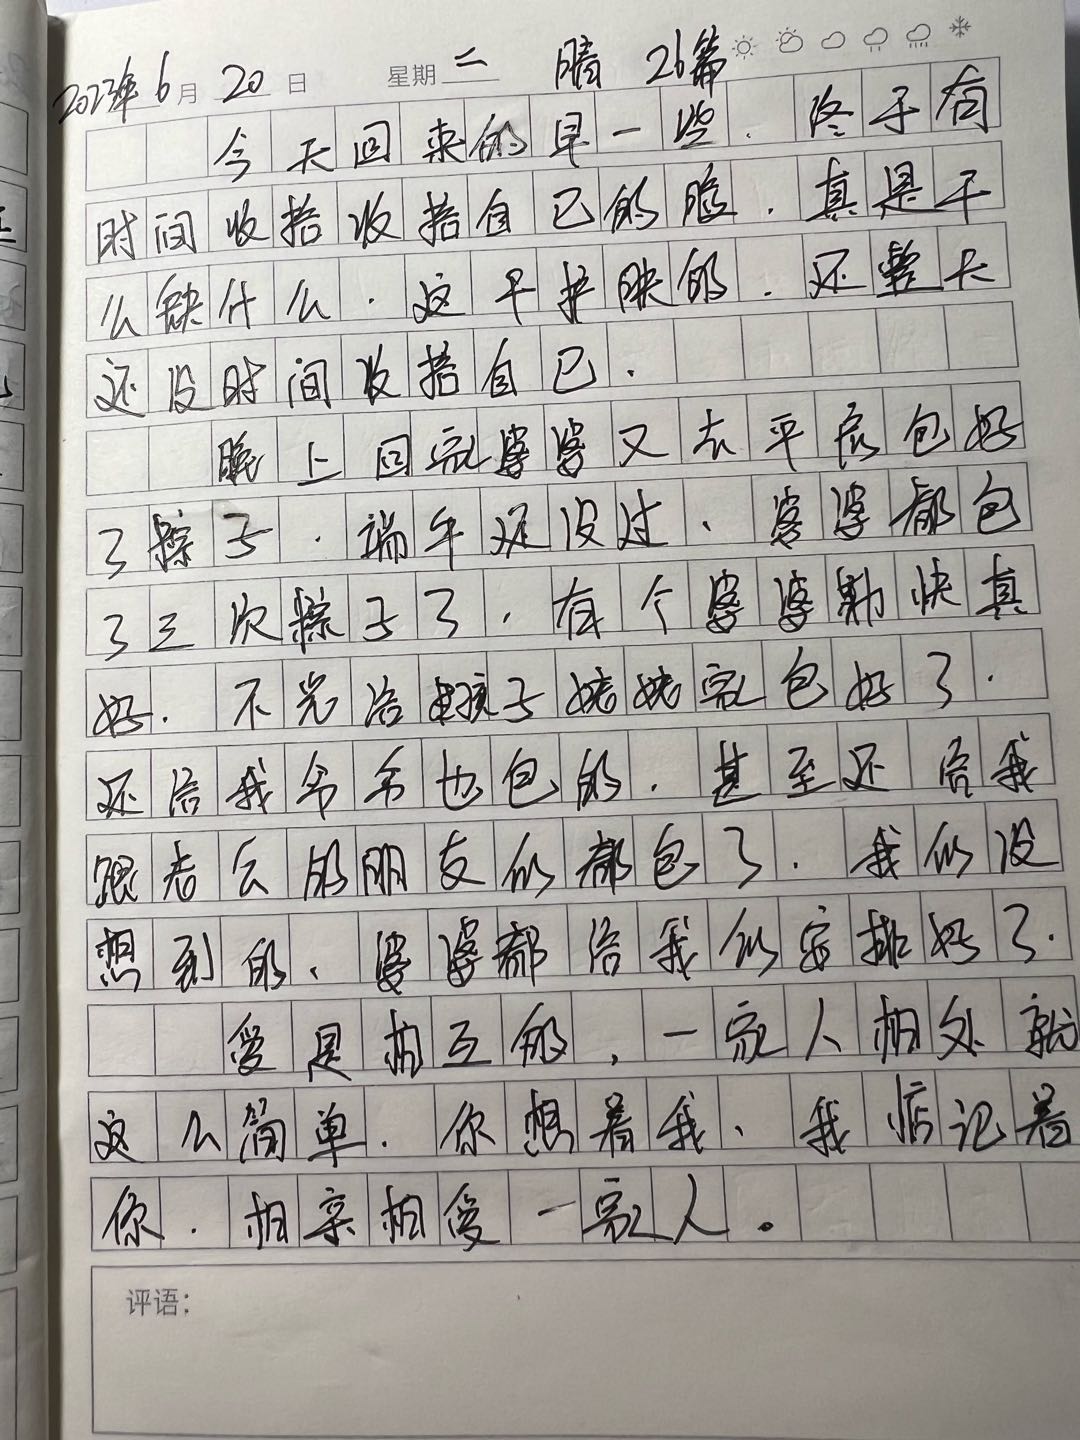 2023年6月20日 星期二 晴 26篇
今天回来的早一些.终于有
时间收拾收拾自己的脸.真是干
么缺什么.这干护肤的.还整天
还没时间收拾自己.
晚上回家婆婆又去平房包好
了粽子.端午还没过、婆婆都包
了三次粽子了.有个婆婆勤快真
好.不光给孩子姥姥家包好了.
还给我爷爷也包的.甚至还给我
跟老公的朋友们都包了.我们没
想到的、婆婆都给我们安排好了.
爱是相互的,一家人相处就
这么简单.你想着我、我惦记着
你.相亲相爱一家人。
评语: